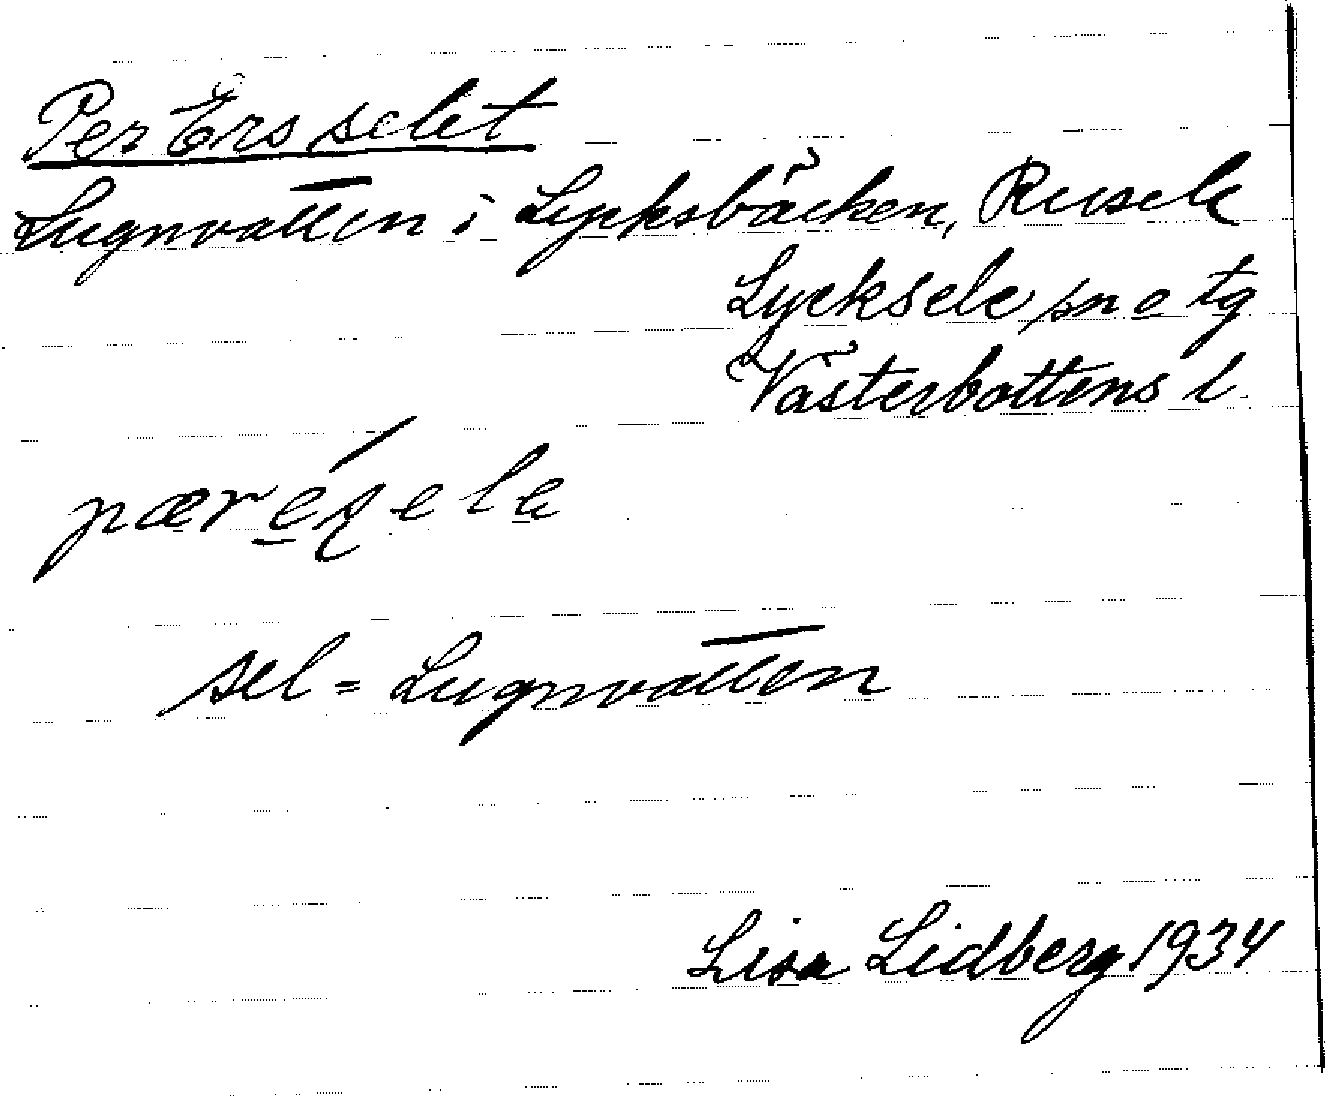 Per Ersselet
Lugnvatten i Lycksbäcken, Rusele
Lycksele sn o tg
Västerbottens l.
sel = Lugnvatten
Lisa Lidberg 1934